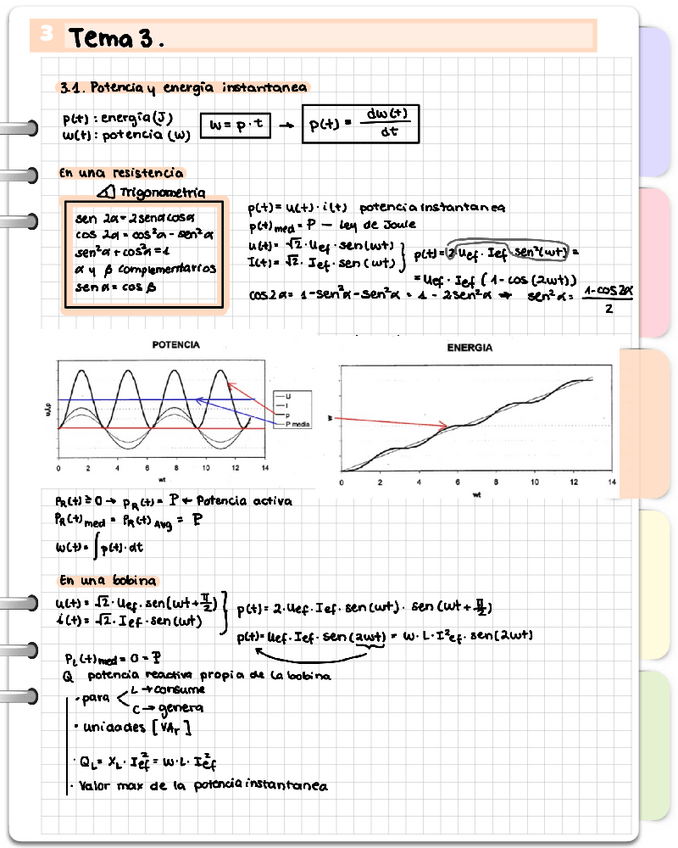 3 Tema 3.
3.1. Potencia y energía instantanea
p(t) : energía (J)
w(t) : potencia (w)
w = p · t → p(t) = dw(t) / dt
En una resistencia
Trigonometría
sen 2α = 2senα cosα
cos 2α = cos²α - sen²α
sen²α + cos²α = 1
α y β complementarios
sen α = cos β
p(t) = u(t) · i(t) potencia instantanea
p(t)med = P - Ley de Joule
u(t) = √2 · Uef · sen(wt)
I(t) = √2 · Ief · sen(wt)
p(t) = 2 · Uef · Ief · sen²(wt) =
= Uef · Ief (1 - cos(2wt))
cos2α = 1 - sen²α - sen²α = 1 - 2sen²α ⇒ sen²α = 1-cos2α / 2
POTENCIA
u,i,p
U
I
p
P media
0 2 4 6 8 10 12 14
wt
ENERGIA
w
0 2 4 6 8 10 12 14
wt
PR(t) ≥ 0 → PR(t) = P ← Potencia activa
PR(t)med = PR(t)Avg = P
w(t) = ∫p(t) · dt
En una bobina
u(t) = √2 · Uef · sen(wt + π/2)
i(t) = √2 · Ief · sen(wt)
p(t) = 2 · Uef · Ief · sen(wt) · sen(wt + π/2)
p(t) = Uef · Ief · sen(2wt) = w · L · I²ef · sen(2wt)
PL(t)med = 0 = P
Q potencia reactiva propia de la bobina
· para L → consume
C → genera
· unidades [VAr]
· QL = XL · Ief² = w · L · Ief²
· Valor max de la potencia instantanea